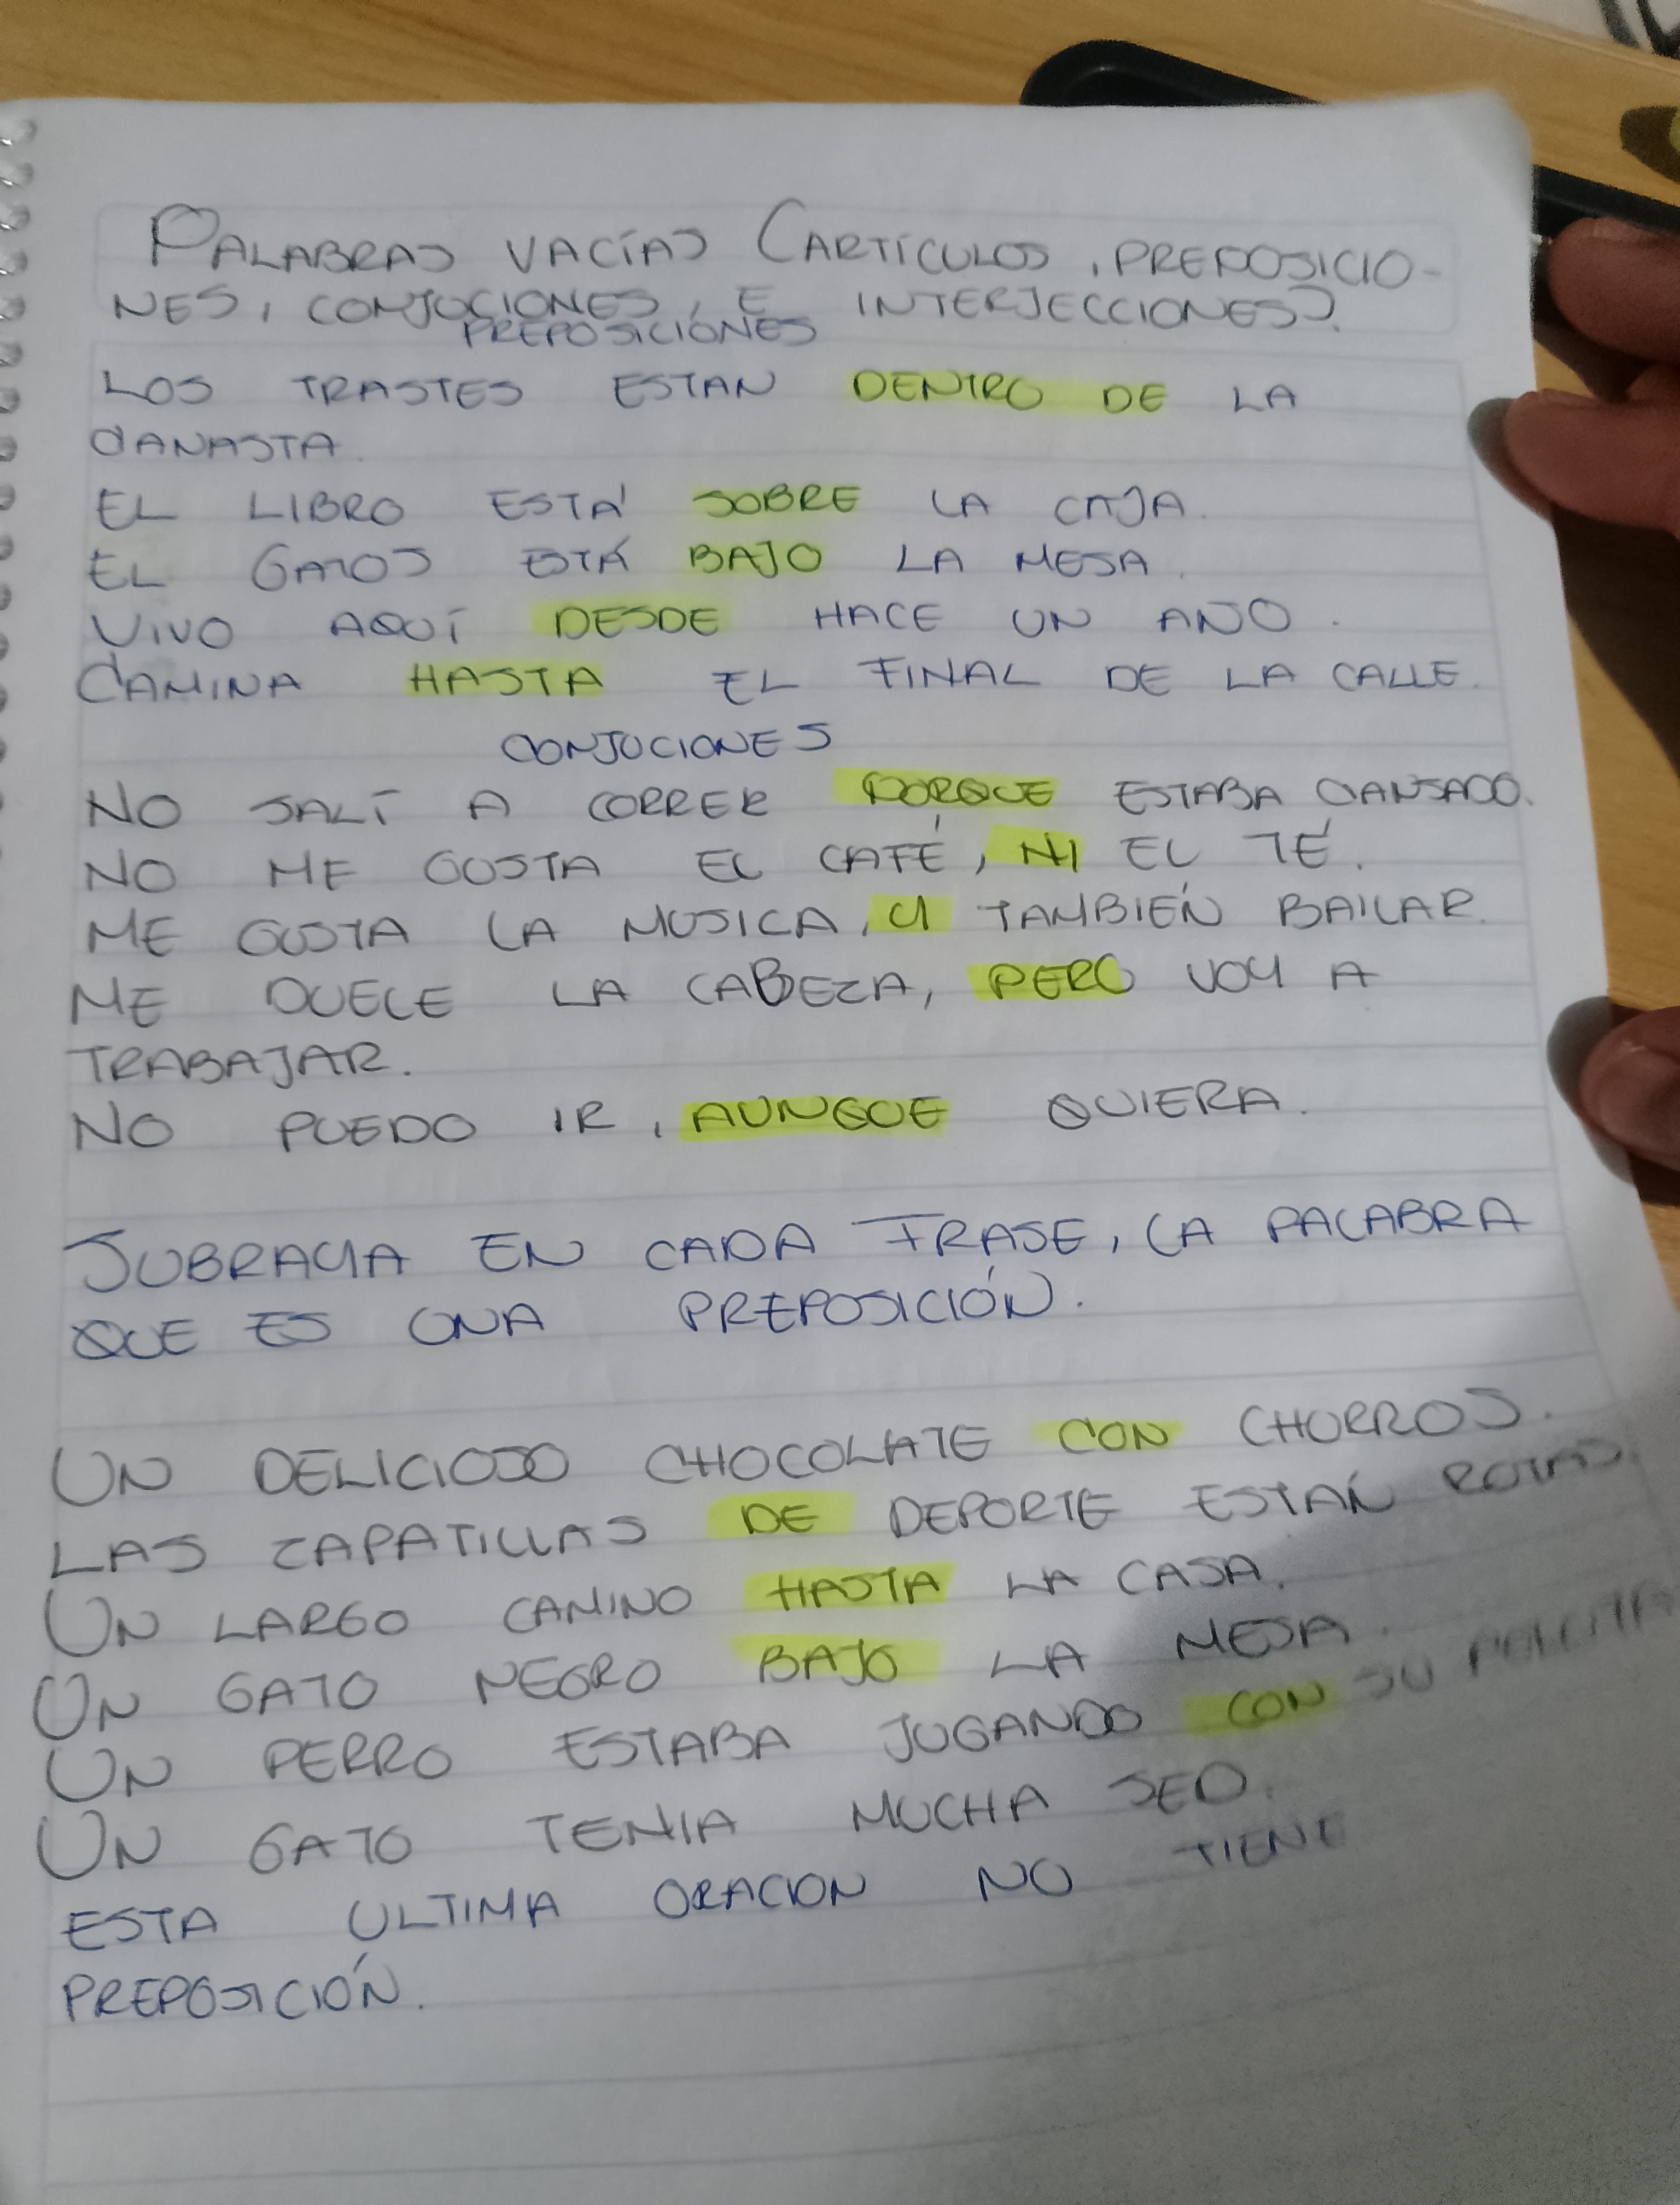 PALABRAS VACÍAS (ARTÍCULOS, PREPOSICIO-
NES, CONJUCIONES, E INTERJECCIONES).
PREPOSICIONES
LOS TRASTES ESTAN DENTRO DE LA
CANASTA.
EL LIBRO ESTÁ SOBRE LA CAJA.
EL GATOS ESTÁ BAJO LA MESA.
VIVO AQUÍ DESDE HACE UN AÑO.
CAMINA HASTA EL FINAL DE LA CALLE.
CONJUCIONES
NO SALÍ A CORRER PORQUE ESTABA CANSADO.
NO ME GUSTA EL CAFÉ, NI EL TÉ.
ME GUSTA LA MUSICA, Y TAMBIÉN BAILAR.
ME DUELE LA CABEZA, PERO VOY A
TRABAJAR.
NO PUEDO IR, AUNQUE QUIERA.
SUBRAYA EN CADA FRASE, LA PALABRA
QUE ES UNA PREPOSICIÓN.
UN DELICIOSO CHOCOLATE CON CHURROS.
LAS ZAPATILLAS DE DEPORTE ESTÁN ROTAS.
UN LARGO CAMINO HASTA LA CASA.
UN GATO NEGRO BAJO LA MESA.
UN PERRO ESTABA JUGANDO CON SU PELOTA
UN GATO TENIA MUCHA SED.
ESTA ULTIMA ORACION NO TIENE
PREPOSICIÓN.